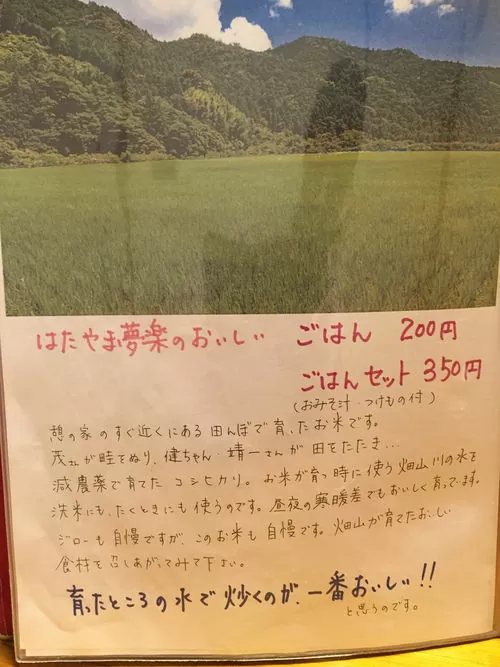 はたやま夢楽のおいしい ごはん 200円
ごはんセット 350円
(おみそ汁・つけもの付)
憩の家のすぐ近くにある田んぼで育ったお米です。
茂さんが畦をぬり、健ちゃん・靖一さんが田をたたき…
減農薬で育てたコシヒカリ。お米が育つ時に使う畑山川の水を
洗米にも、たくときにも使うのです。昼夜の寒暖差でもおいしく育ってます。
ジローも自慢ですが、このお米も自慢です。畑山が育てたおいしい
食材を召しあがってみて下さい。
育ったところの水で炊くのが、一番おいしい!!
と思うのです。